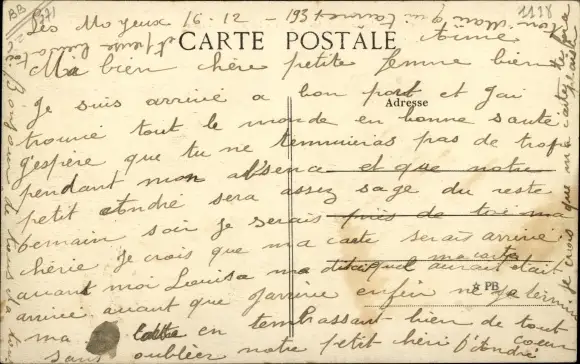 BB 971
1118
Les Moyeux 16-12-193
CARTE POSTALE
Ma bien chère petite femme bien
Aimé
Adresse
Je suis arrivé a bon port et j'ai
trouvé tout le monde en bonne santé
j'espère que tu ne temmuieras pas de trop
pendant mon absence et que notre
petit André sera assez sage du reste
Demain soir je serais près de toi ma
chérie je crois que ma carte serais arrivé
avant moi Louisa ma dit quel aurait était
ma carte
arrivé avant que j'arrive enfin je termine
ma lettre en tembrassant bien de tout
coeur
sans oublier notre petit chéri d'André
& PB
ton mari qui t'aime
je crois que ma carte